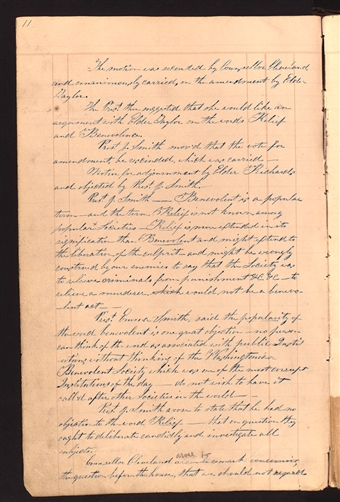 11
The motion was seconded by Counsellor Cleveland
and unanimously carried, on the amendment by Elder
Taylor.
The Prest. then suggested that she would like an
argument with Elder Taylor on the words Relief
and Benevolence
Prest. J. Smith moved that the vote for
amendment be rescinded, which was carried—
Motion for adjournment by Elder Richards
and objected by Prest. J. Smith.—
Prest. J. Smith — Benevolent is a popular
term — and the term Relief is not known among
popular Societies — Relief is more extended in its
signification than Benevolent and might extend to
the liberation of the culprit — and might be wrongly
construed by our enemies to say that the Society was
to relieve criminals from punishment &c. &c — to
relieve a murderer, which would not be a benevo-
lent act—
Prest. Emma Smith, said the popularity of
the word benevolent is one great objection — no person
can think of the word as associated with public Instit-
utions, without thinking of the Washingtonian
Benevolent Society which was one of the most corrupt
Institutions of the day — do not wish to have it
called after other Societies in the world—
Prest. J. Smith arose to state that he had no
objection to the word Relief — that on question they
ought to deliberate candidly and investigate all
subjects.
Counsellor Cleveland arose to remark concerning
the question before the house, that we should not regard